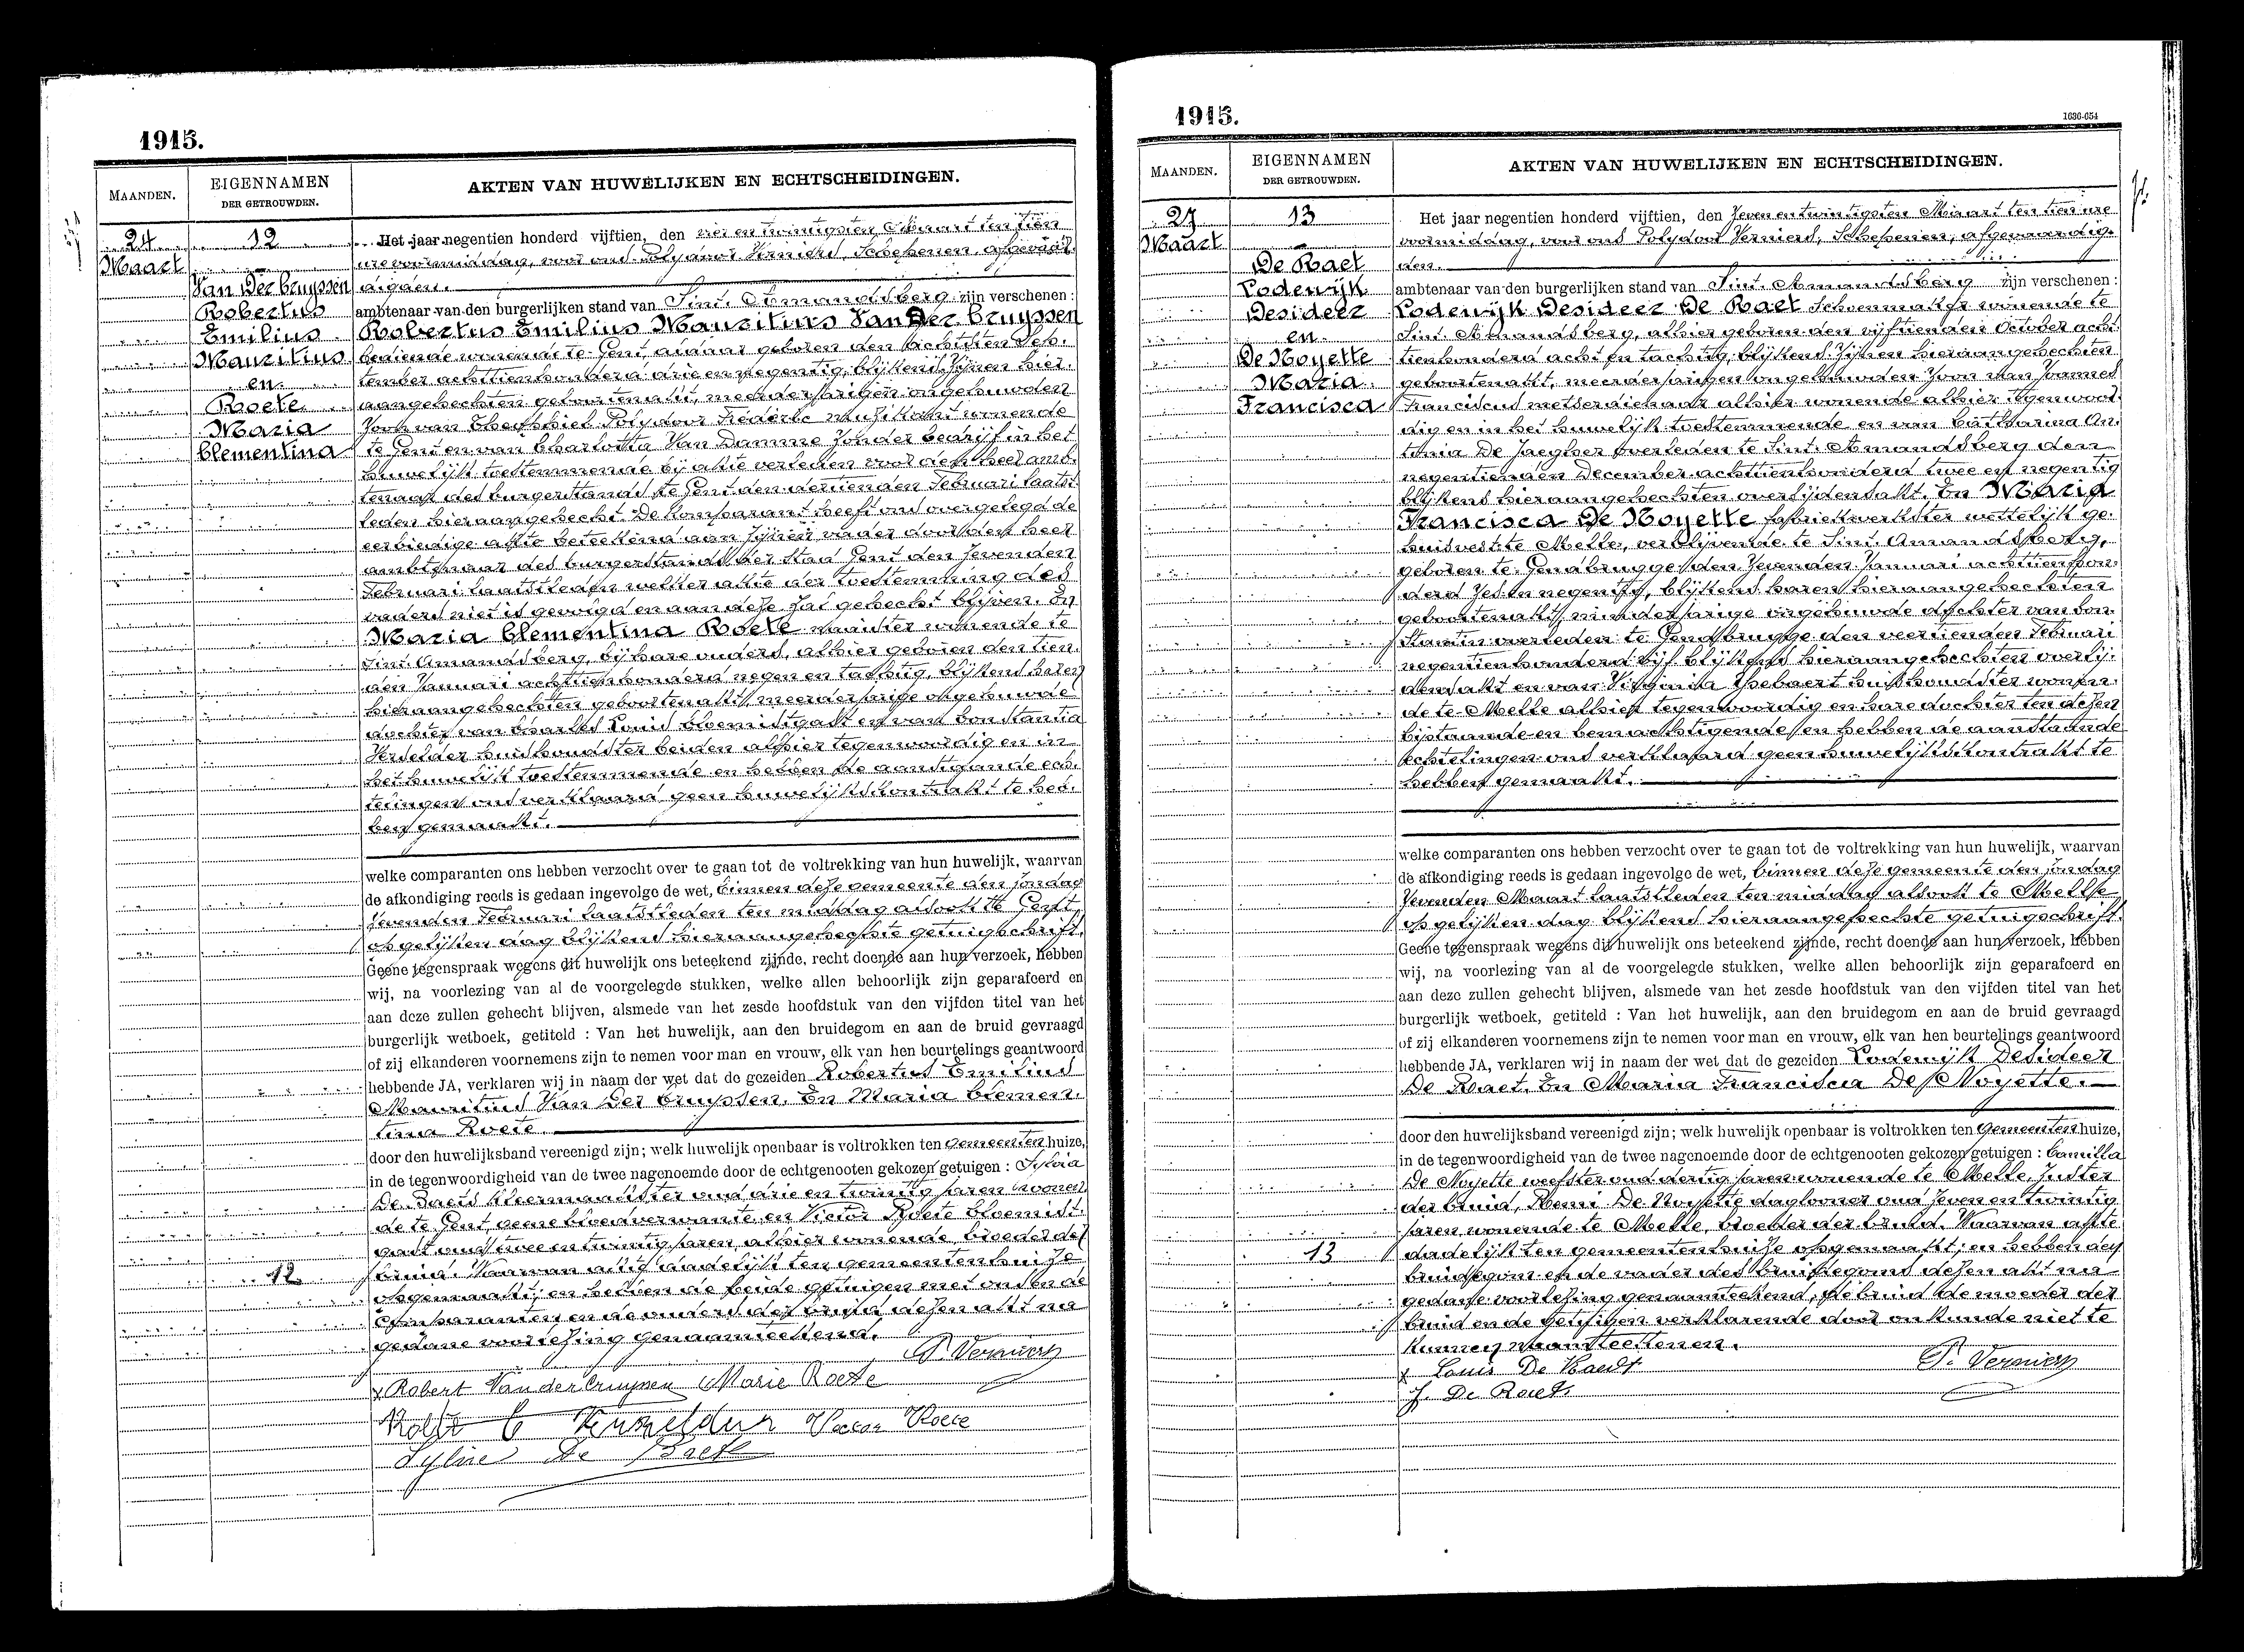 1915.
MAANDEN.
EIGENNAMEN
DER GETROUWDEN.
AKTEN VAN HUWELIJKEN EN ECHTSCHEIDINGEN.
24
Maart
12
Van Der Cruyssen
Robertus
Emilius
Mauritius
en
Roete
Maria
Clementina
Het jaar negentien honderd vijftien, den vier en twintigsten Maart ten tien
ure voormiddag, voor ons Polydoor Verniers, Schepenen, afgevaar-
digden.
ambtenaar van den burgerlijken stand van Sint Amandsberg zijn verschenen :
Robertus Emilius Mauritius Van Der Cruyssen
bediende wonende te Gent aldaar geboren den achtsten Sep-
tember achttienhonderd drie en negentig, blijkens zijnen hier-
aangehechten geboortenakt, meerderjarigen ongehuwden
zoon van Ezechhiel Polydoor Frederic muzikant wonende
te Gent en van Charlotta Van Damme zonder bedrijf in het
huwelijk toestemmende bij akte verleden voor den heer amb-
tenaar des burgerstands te Gent den dertienden Februari laatst-
leden hieraangehecht. De komparant heeft ons overgelegd de
eerbiedige akte beteekend aan zijnen vader door den heer
ambtenaar des burgerstands der stad Gent den zevenden
Februari laatstleden welker akte der toestemming des
vaders niet is gevolgd en aan deze zal gehecht blijven. En
Maria Clementina Roete naaister wonende te
Sint Amandsberg, bij hare ouders, alhier geboren den tien-
den Januari achttienhonderd negen en tachtig, blijkens haren
hieraangehechten geboortenakt, meerderjarige ongehuwde
dochter van Charles Louis bloemistgast en van Constantia
Verselder huishoudster beiden alhier tegenwoordig en in
het huwelijk toestemmende en hebben de aanstaande ech-
telingen ons verklaard geen huwelijkskontrakt te heb-
ben gemaakt.
welke comparanten ons hebben verzocht over te gaan tot de voltrekking van hun huwelijk, waarvan
de afkondiging reeds is gedaan ingevolge de wet, binnen deze gemeente den zondag
zevenden Februari laatstleden ten middag alsook te Gent
op gelijken dag blijkens hieraangehechte getuigschrift.
Geene tegenspraak wegens dit huwelijk ons beteekend zijnde, recht doende aan hun verzoek, hebben
wij, na voorlezing van al de voorgelegde stukken, welke allen behoorlijk zijn geparafeerd en
aan deze zullen gehecht blijven, alsmede van het zesde hoofdstuk van den vijfden titel van het
burgerlijk wetboek, getiteld : Van het huwelijk, aan den bruidegom en aan de bruid gevraagd
of zij elkanderen voornemens zijn te nemen voor man en vrouw, elk van hen beurtelings geantwoord
hebbende JA, verklaren wij in naam der wet dat de gezeiden Robertus Emilius
Mauritius Van Der Cruyssen. En Maria Clemen-
tina Roete.
door den huwelijksband vereenigd zijn; welk huwelijk openbaar is voltrokken ten gemeentenhuize,
in de tegenwoordigheid van de twee nagenoemde door de echtgenooten gekozen getuigen : Sylvia
De Baets kleermaakster oud drie en twintig jaren wonen-
de te Gent, geene bloedverwante, en Victor Roete bloemist-
gast oud twee en twintig jaren, alhier wonende, broeder der
bruid. Waarvan akte dadelijk ten gemeentenhuize
opgemaakt; en hebben de beide getuigen met ons en de
comparanten en de ouders der bruid dezen akt na
gedane voorlezing genaamteekend.
12
P. Verniers
x Robert Van der Cruyssen Marie Roete
Roete C Verselder Victor Roete
Sylvie De Baets
1915.
1636-654
MAANDEN.
EIGENNAMEN
DER GETROUWDEN.
AKTEN VAN HUWELIJKEN EN ECHTSCHEIDINGEN.
27
Maart
13
De Raet
Lodewijk
Desideer
en
De Noyette
Maria
Francisca
Het jaar negentien honderd vijftien, den zeven en twintigsten Maart ten tien ure
voormiddag, voor ons Polydoor Verniers, Schepenen, afgevaardig-
den.
ambtenaar van den burgerlijken stand van Sint Amandsberg zijn verschenen :
Lodewijk Desideer De Raet schoenmaker wonende te
Sint Amandsberg, alhier geboren den vijftienden October acht-
tienhonderd acht en tachtig, blijkens zijnen hieraangehechten
geboortenakt, meerderjarigen ongehuwden zoon van Joannes
Franciscus metserdienaar alhier wonende alhier tegenwoor-
dig en in het huwelijk toestemmende en van Catharina An-
tonia De Jaegher overleden te Sint Amandsberg den
negentienden December achttienhonderd twee en negentig
blijkens hieraangehechten overlijdensakt. En Maria
Francisca De Noyette fabriekwerkster wettelijk ge-
huisvest te Melle, verblijvende te Sint Amandsberg,
geboren te Gendbrugge den zevenden Januari achttienhon-
derd zes en negentig, blijkens haren hieraangehechten
geboortenakt, minderjarige ongehuwde dochter van Con-
stantin overleden te Gendbrugge den veertienden Februari
negentienhonderd vijf blijkens hieraangehechten overlij-
densakt en van Virginia Ysebaert huishoudster wonen-
de te Melle alhier tegenwoordig en hare dochter ten dezen
bijstaande en bemachtigende en hebben de aanstaande
echtelingen ons verklaard geen huwelijkskontrakt te
hebben gemaakt.
welke comparanten ons hebben verzocht over te gaan tot de voltrekking van hun huwelijk, waarvan
de afkondiging reeds is gedaan ingevolge de wet, binnen deze gemeente den zondag
zevenden Maart laatstleden ten middag alsook te Melle
op gelijken dag blijkens hieraangehechte getuigschrift.
Geene tegenspraak wegens dit huwelijk ons beteekend zijnde, recht doende aan hun verzoek, hebben
wij, na voorlezing van al de voorgelegde stukken, welke allen behoorlijk zijn geparafeerd en
aan deze zullen gehecht blijven, alsmede van het zesde hoofdstuk van den vijfden titel van het
burgerlijk wetboek, getiteld : Van het huwelijk, aan den bruidegom en aan de bruid gevraagd
of zij elkanderen voornemens zijn te nemen voor man en vrouw, elk van hen beurtelings geantwoord
hebbende JA, verklaren wij in naam der wet dat de gezeiden Lodewijk Desideer
De Raet. En Maria Francisca De Noyette.
door den huwelijksband vereenigd zijn; welk huwelijk openbaar is voltrokken ten gemeentenhuize,
in de tegenwoordigheid van de twee nagenoemde door de echtgenooten gekozen getuigen : Camilla
De Noyette weefster oud dertig jaren wonende te Melle, zuster
der bruid, Remi De Noyette daglooner oud zeven en twintig
jaren, wonende te Melle, broeder der bruid. Waarvan akte
dadelijk ten gemeentenhuize opgemaakt; en hebben den
bruidegom en de vader des bruidegoms dezen akt na
gedane voorlezing genaamteekend, de bruid de moeder der
bruid en de getuigen verklarende door onkunde niet te
kunnen naamteekenen.
13
x Louis De Raedt
P. Verniers
J. De Raet